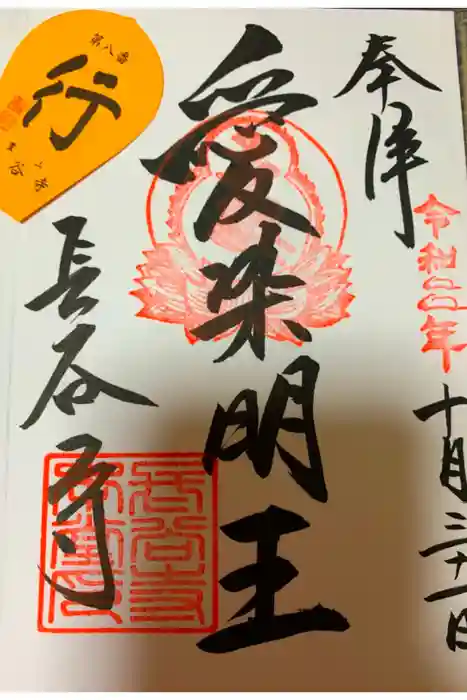 奉拝
令和
年
十月三十一日
愛染明王
長谷寺
長谷寺
第八番
行